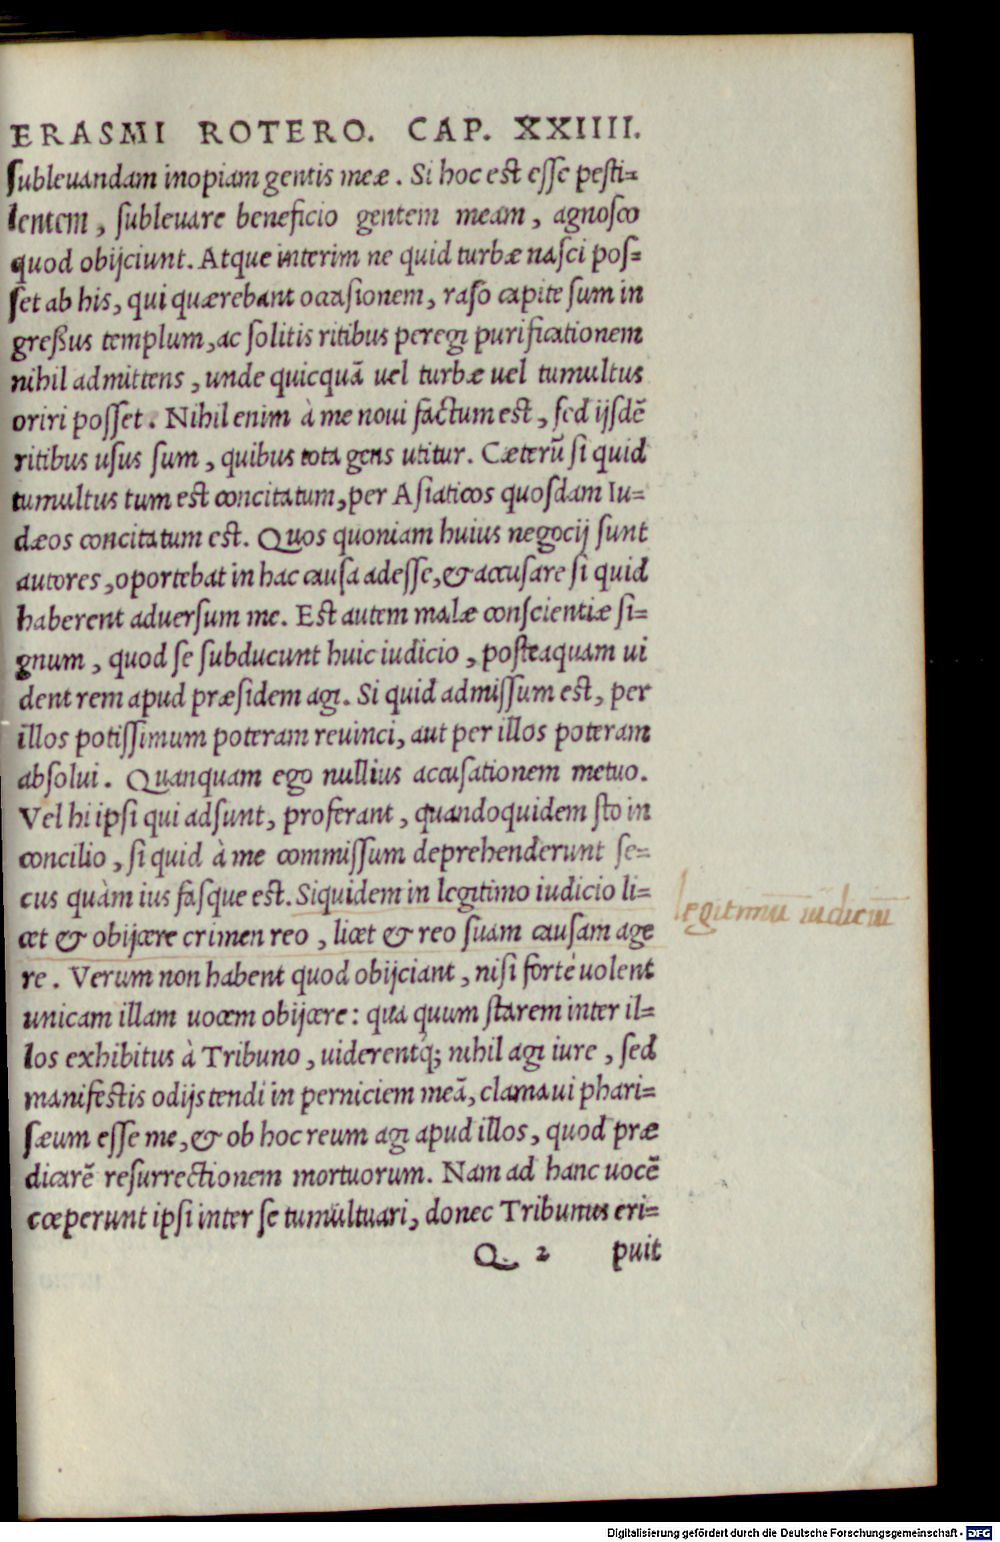 ERASMI ROTERO. CAP. XXIIII.
subleuandam inopiam gentis meæ. Si hoc est esse pesti-
lentem, subleuare beneficio gentem meam, agnosco
quod obijciunt. Atque interim ne quid turbæ nasci pos-
set ab his, qui quærebant occasionem, raso capite sum in
greßus templum, ac solitis ritibus peregi purificationem
nihil admittens, unde quicquã uel turbæ uel tumultus
oriri posset. Nihil enim à me noui factum est, sed ijsdẽ
ritibus usus sum, quibus tota gens utitur. Cæterũ si quid
tumultus tum est concitatum, per Asiaticos quosdam Iu-
dæos concitatum est. Quos quoniam huius negocij sunt
autores, oportebat in hac causa adesse, & accusare si quid
haberent aduersum me. Est autem malæ conscientiæ si-
gnum, quod se subducunt huic iudicio, posteaquam ui
dent rem apud præsidem agi. Si quid admissum est, per
illos potissimum poteram reuinci, aut per illos poteram
absolui. Quanquam ego nullius accusationem metuo.
Vel hi ipsi qui adsunt, proferant, quandoquidem sto in
concilio, si quid à me commissum deprehenderunt se-
cus quàm ius fasque est. Siquidem in legitimo iudicio li-
cet & obijcere crimen reo, licet & reo suam causam age
re. Verum non habent quod obijciant, nisi fortè uolent
unicam illam uocem obijcere: qua quum starem inter il-
los exhibitus à Tribuno, uiderentq́; nihil agi iure, sed
manifestis odijs tendi in perniciem meã, clamaui phari-
sæum esse me, & ob hoc reum agi apud illos, quod præ
dicarẽ resurrectionem mortuorum. Nam ad hanc uocẽ
cœperunt ipsi inter se tumultuari, donec Tribunus eri-
Q 2 puit
legitimũ iudiciũ
Digitalisierung gefördert durch die Deutsche Forschungsgemeinschaft - DFG